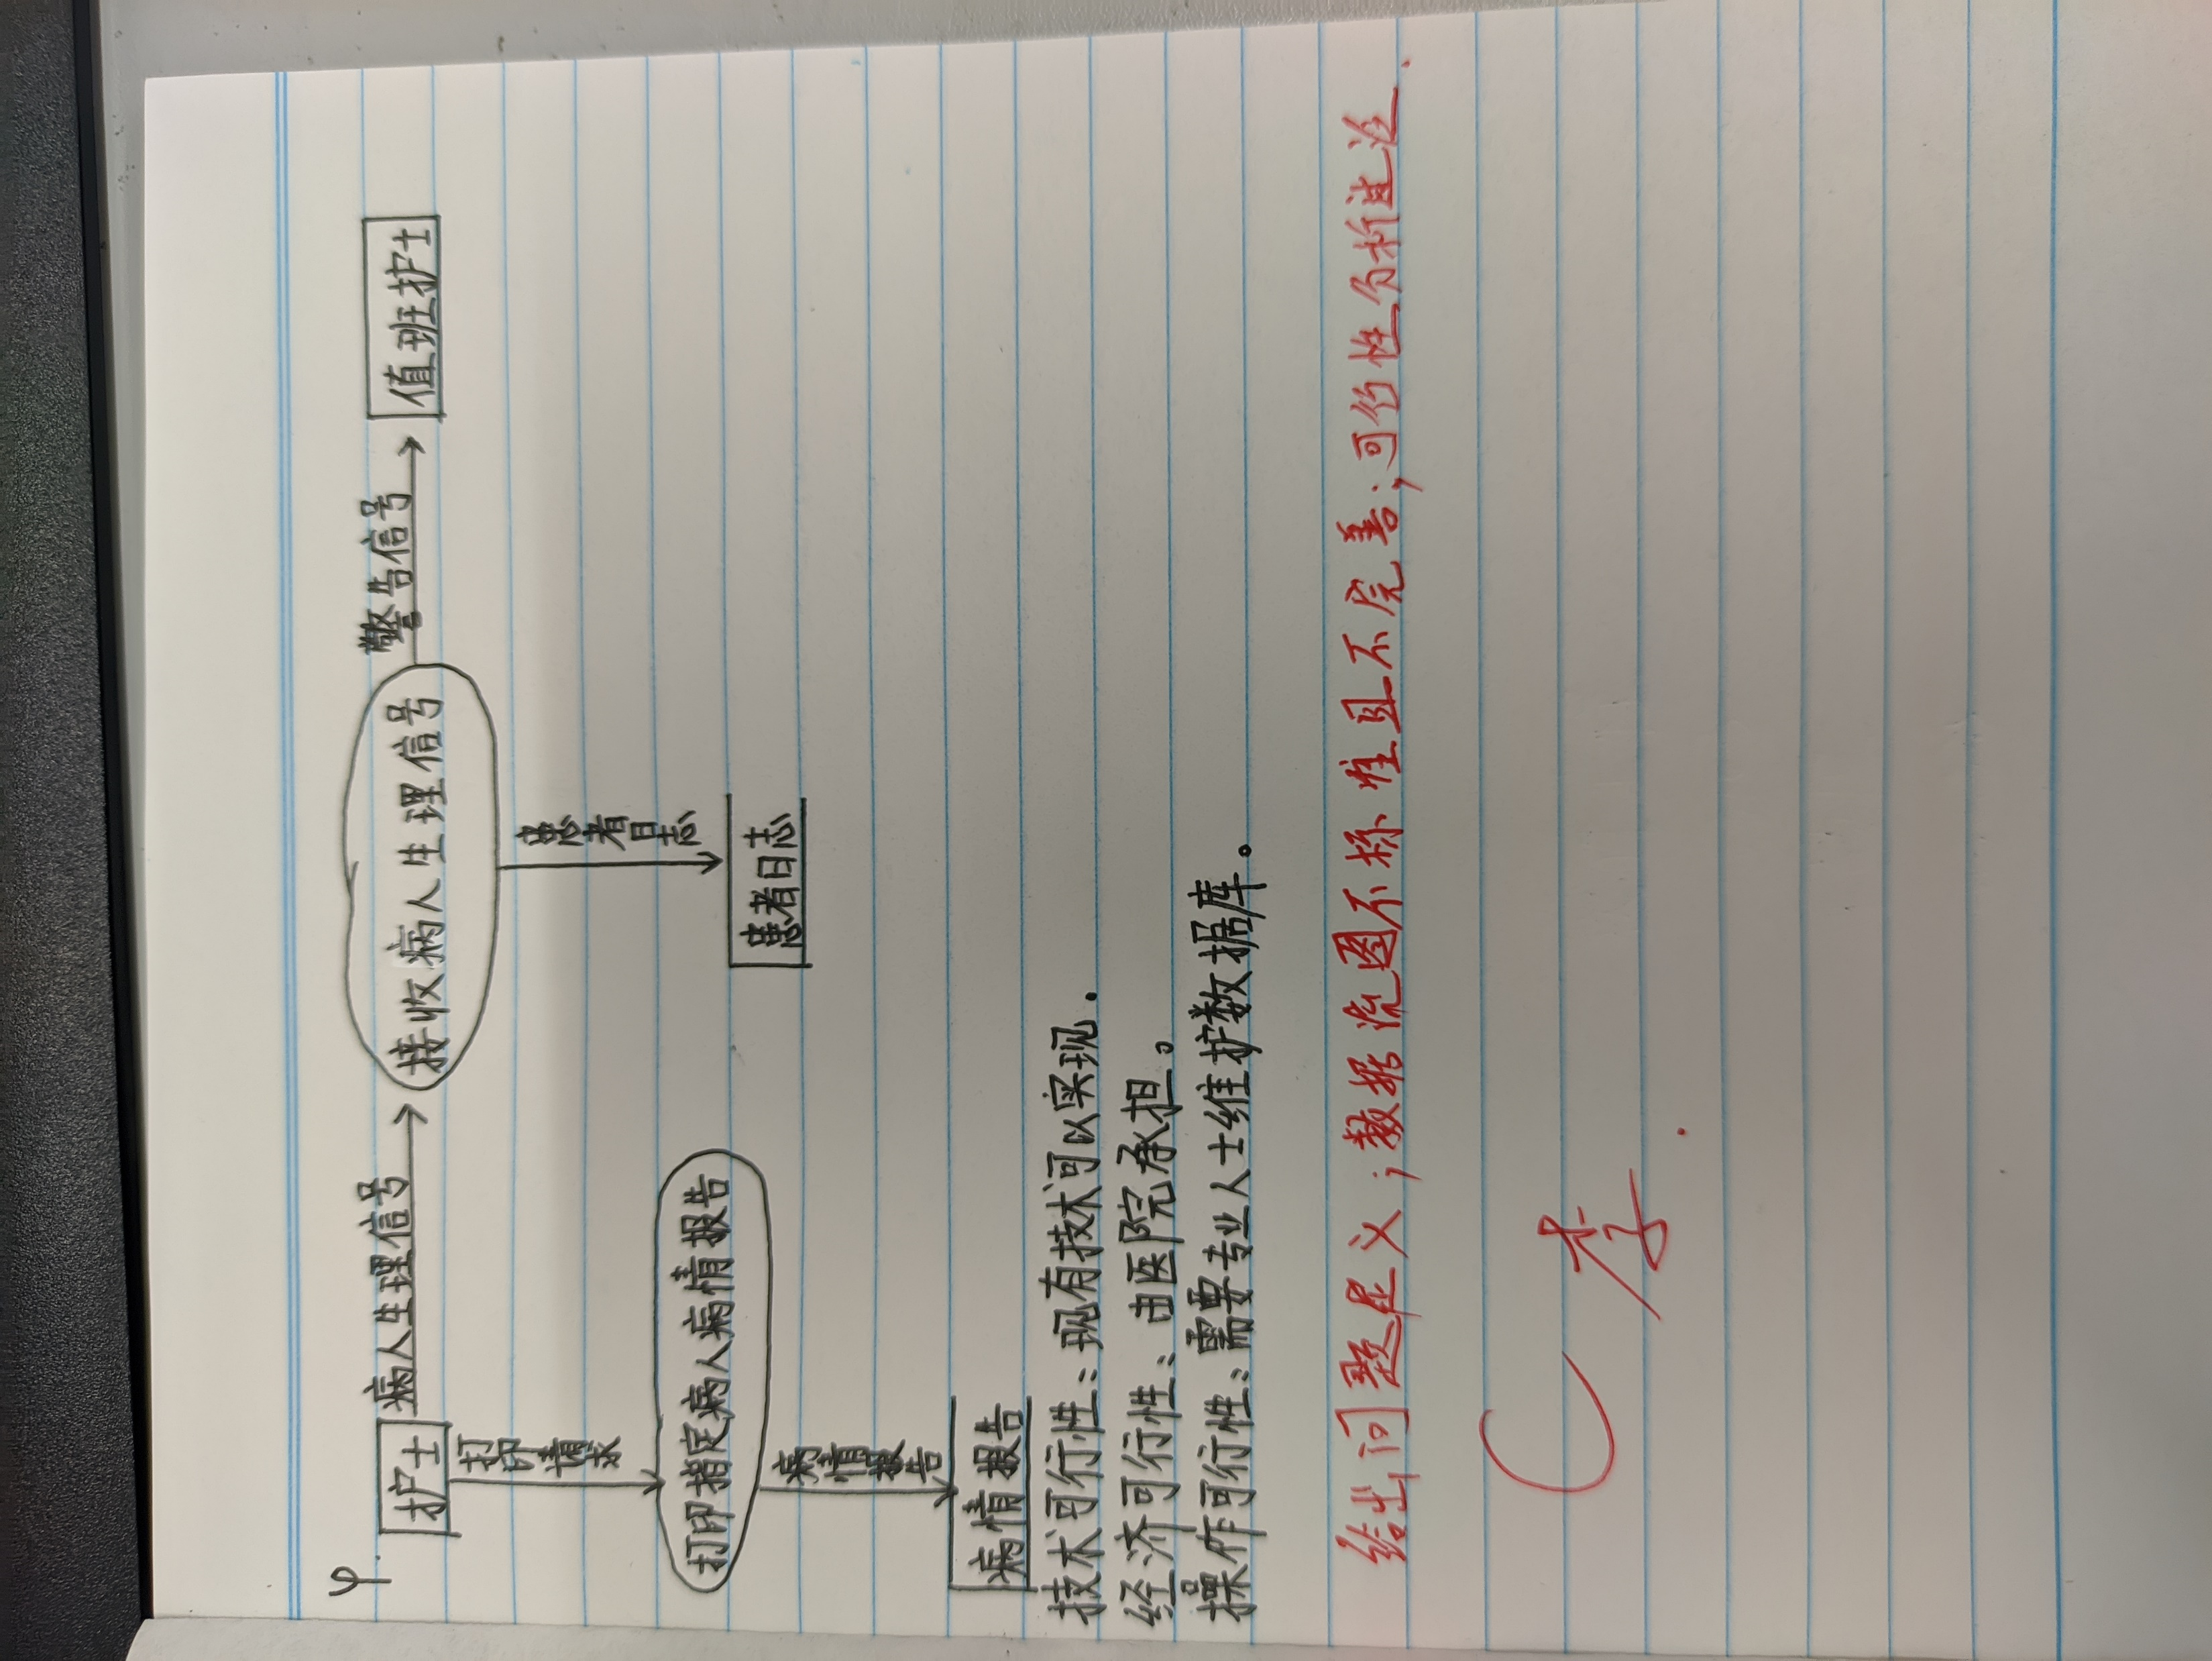 4.
护士 病人生理信号 接收病人生理信号 警告信号 值班护士
打印请求
患者日志
打印指定病人病情报告
患者日志
病情报告
病情报告
技术可行性：现有技术可以实现.
经济可行性：由医院承担。
操作可行性：需要专业人士维护数据库。
给出问题定义；数据流图不标准且不完善；可行性分析过泛.
C 李